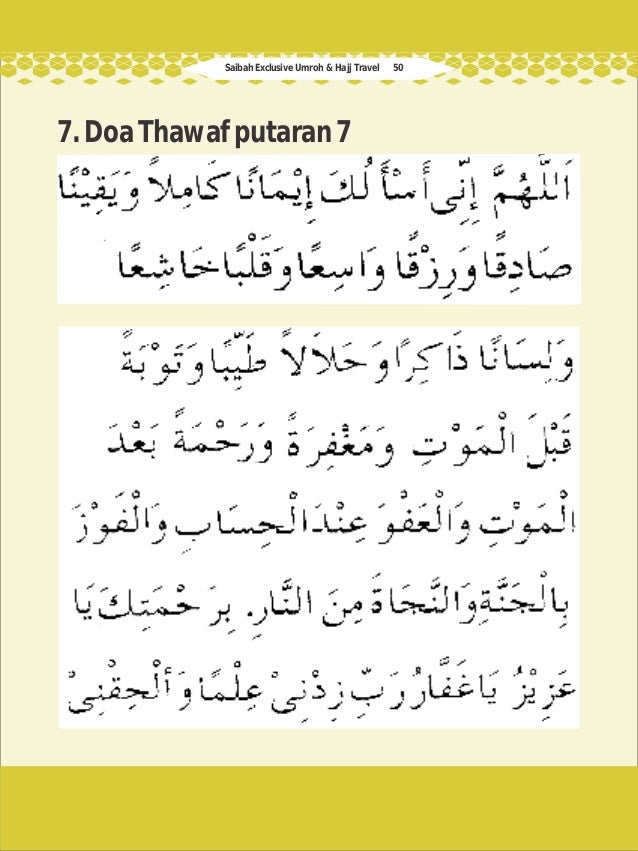 Saibah Exclusive Umroh & Hajj Travel 50
7. Doa Thawaf putaran 7
اَللَّهُمَّ إِنِّى أَسْأَلُكَ إِيْمَانًا كَامِلاً وَيَقِيْنًا
صَادِقًا وَرِزْقًا وَاسِعًا وَقَلْبًا خَاشِعًا
وَلِسَانًا ذَاكِرًا وَحَلَالاً طَيِّبًا وَتَوْبَةً
قَبْلَ الْمَوْتِ وَمَغْفِرَةً وَرَحْمَةً بَعْدَ
الْمَوْتِ وَالْعَفْوَ عِنْدَ الْحِسَابِ وَالْفَوْزَ
بِالْجَنَّةِ وَالنَّجَاةَ مِنَ النَّارِ. بِرَحْمَتِكَ يَا
عَزِيْزُ يَا غَفَّارُ رَبِّ زِدْنِىْ عِلْمًا وَأَلْحِقْنِىْ